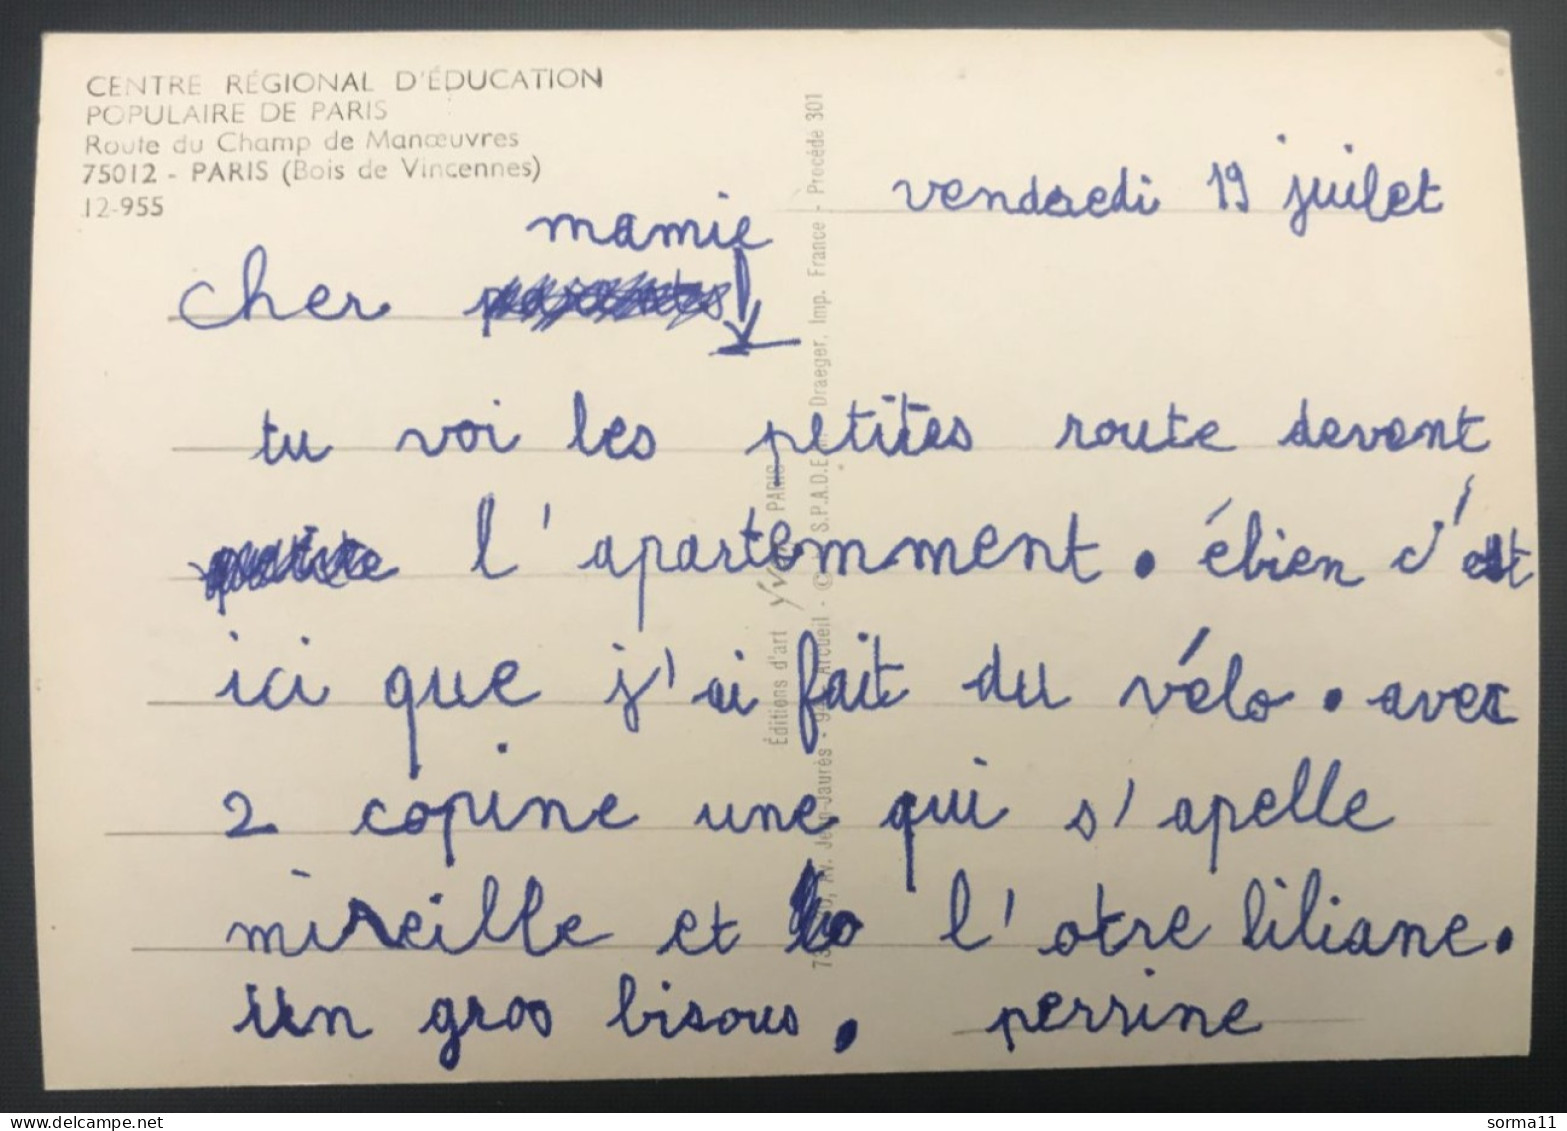 CENTRE RÉGIONAL D'ÉDUCATION
POPULAIRE DE PARIS
Route du Champ de Manœuvres
75012 - PARIS (Bois de Vincennes)
12-955
vendredi 19 juilet
mamie
cher
tu voi les petites route devant
l'apartemment. ébien c'est
ici que j'ai fait du vélo. avec
2 copine une qui s'apelle
mireille et l'otre liliane.
un gros bisous. perrine
Éditions d'art yvon PARIS
Av. Jean-Jaurès - 94 Arcueil - © S.P.A.D.E.M. Draeger, Imp. France - Procédé 301
delcampe.net
sorma11